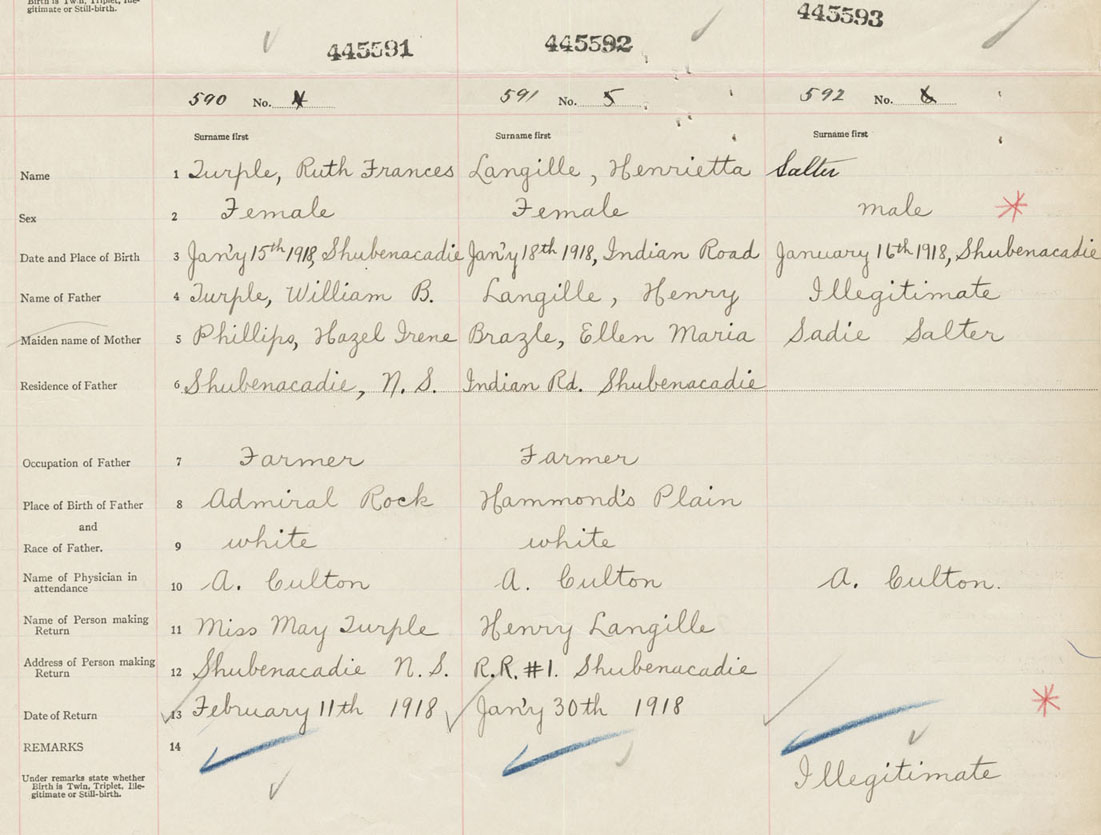 Birth is Twin, Triplet, Ille-
gitimate or Still-birth.
445591 445592 445593
590 No. 4 591 No. 5 592 No. 6
Surname first Surname first Surname first
Name 1 Turple, Ruth Frances Langille, Henrietta Salter
Sex 2 Female Female male
Date and Place of Birth 3 Jan'y 15th 1918, Shubenacadie Jan'y 18th 1918, Indian Road January 16th 1918, Shubenacadie
Name of Father 4 Turple, William B. Langille, Henry Illegitimate
Maiden name of Mother 5 Phillips, Hazel Irene Brazle, Ellen Maria Sadie Salter
Residence of Father 6 Shubenacadie, N. S. Indian Rd. Shubenacadie
Occupation of Father 7 Farmer Farmer
Place of Birth of Father 8 Admiral Rock Hammond's Plain
and
Race of Father. 9 white white
Name of Physician in
attendance 10 A. Culton A. Culton A. Culton.
Name of Person making
Return 11 Miss May Turple Henry Langille
Address of Person making
Return 12 Shubenacadie N. S. R.R. #1. Shubenacadie
Date of Return 13 February 11th 1918 Jan'y 30th 1918
REMARKS 14
Under remarks state whether
Birth is Twin, Triplet, Ille-
gitimate or Still-birth.
Illegitimate